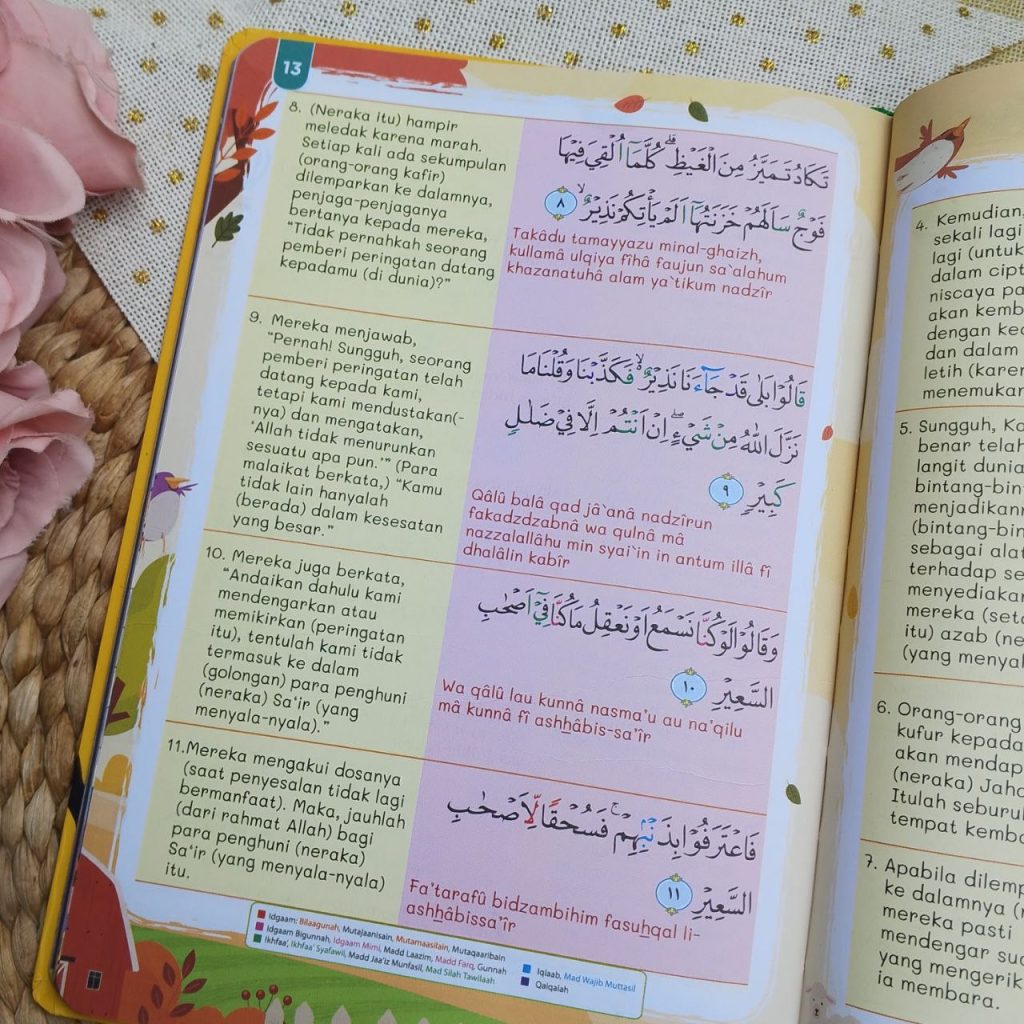 13
8. (Neraka itu) hampir
meledak karena marah.
Setiap kali ada sekumpulan
(orang-orang kafir)
dilemparkan ke dalamnya,
penjaga-penjaganya
bertanya kepada mereka,
“Tidak pernahkah seorang
pemberi peringatan datang
kepadamu (di dunia)?”
تَكَادُ تَمَيَّزُ مِنَ الْغَيْظِۗ كُلَّمَآ اُلْقِيَ فِيْهَا
فَوْجٌ سَاَلَهُمْ خَزَنَتُهَآ اَلَمْ يَأْتِكُمْ نَذِيْرٌۙ ٨
Takâdu tamayyazu minal-ghaizh,
kullamâ ulqiya fîhâ faujun sa`alahum
khazanatuhâ alam ya`tikum nadzîr
9. Mereka menjawab,
“Pernah! Sungguh, seorang
pemberi peringatan telah
datang kepada kami,
tetapi kami mendustakan(-
nya) dan mengatakan,
‘Allah tidak menurunkan
sesuatu apa pun.’” (Para
malaikat berkata,) “Kamu
tidak lain hanyalah
(berada) dalam kesesatan
yang besar.”
قَالُوْا بَلٰى قَدْ جَاۤءَنَا نَذِيْرٌ ەۙ فَكَذَّبْنَا وَقُلْنَا مَا
نَزَّلَ اللّٰهُ مِنْ شَيْءٍۖ اِنْ اَنْتُمْ اِلَّا فِيْ ضَلٰلٍ
كَبِيْرٍ ٩
Qâlû balâ qad jâ`anâ nadzîrun
fakadzdzabnâ wa qulnâ mâ
nazzalallâhu min syai`in in antum illâ fî
dhalâlin kabîr
10. Mereka juga berkata,
“Andaikan dahulu kami
mendengarkan atau
memikirkan (peringatan
itu), tentulah kami tidak
termasuk ke dalam
(golongan) para penghuni
(neraka) Sa‘ir (yang
menyala-nyala).”
وَقَالُوْا لَوْ كُنَّا نَسْمَعُ اَوْ نَعْقِلُ مَا كُنَّا فِيْٓ اَصْحٰبِ
السَّعِيْرِ ١٠
Wa qâlû lau kunnâ nasma’u au na’qilu
mâ kunnâ fî ashhâbis-sa’îr
11. Mereka mengakui dosanya
(saat penyesalan tidak lagi
bermanfaat). Maka, jauhlah
(dari rahmat Allah) bagi
para penghuni (neraka)
Sa‘ir (yang menyala-nyala)
itu.
فَاعْتَرَفُوْا بِذَنْۢبِهِمْۚ فَسُحْقًا لِّاَصْحٰبِ
السَّعِيْرِ ١١
Fa’tarafû bidzambihim fasuhqal li-
ashhâbissa’îr
Idgaam: Bilaagunah, Mutajaanisain, Mutamaasilain, Mutaqaaribain
Idgaam Bigunnah, Idgaam Mimi, Madd Laazim, Madd Farq, Gunnah
Ikhfaa', Ikhfaa' Syafawil, Madd Jaa'iz Munfasil, Mad Silah Tawilaah
Iqlaab, Mad Wajib Muttasil
Qalqalah
4. Kemudian,
sekali lagi
lagi (untuk
dalam cipt
niscaya pa
akan kemb
dengan kec
dan dalam
letih (karen
menemukan
5. Sungguh, Ka
benar telah
langit dunia
bintang-bin
menjadikann
(bintang-bin
sebagai alat
terhadap se
menyediakan
mereka (seta
itu) azab (ne
(yang menyal
6. Orang-orang
kufur kepada
akan mendap
(neraka) Jaha
Itulah seburu
tempat kemba
7. Apabila dilemp
ke dalamnya (n
mereka pasti
mendengar sua
yang mengerik
ia membara.